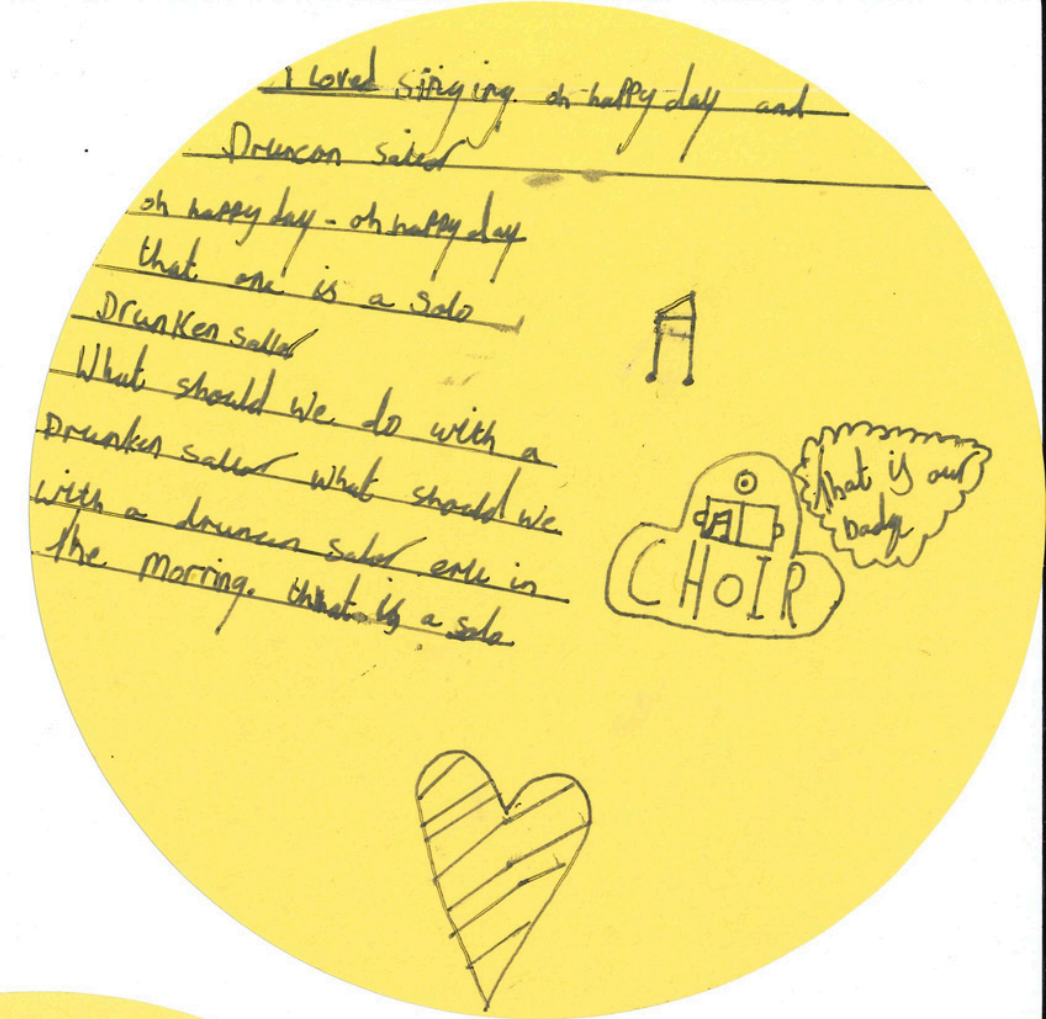 I loved singing oh happy day and
Druncon sailor
oh happy day - oh happy day
that one is a solo
Drunken sailor
What should we do with a
Drunken sailor what should we
with a druncen sailor erli in
the morring. that is a solo
that is our
badge
CHOIR